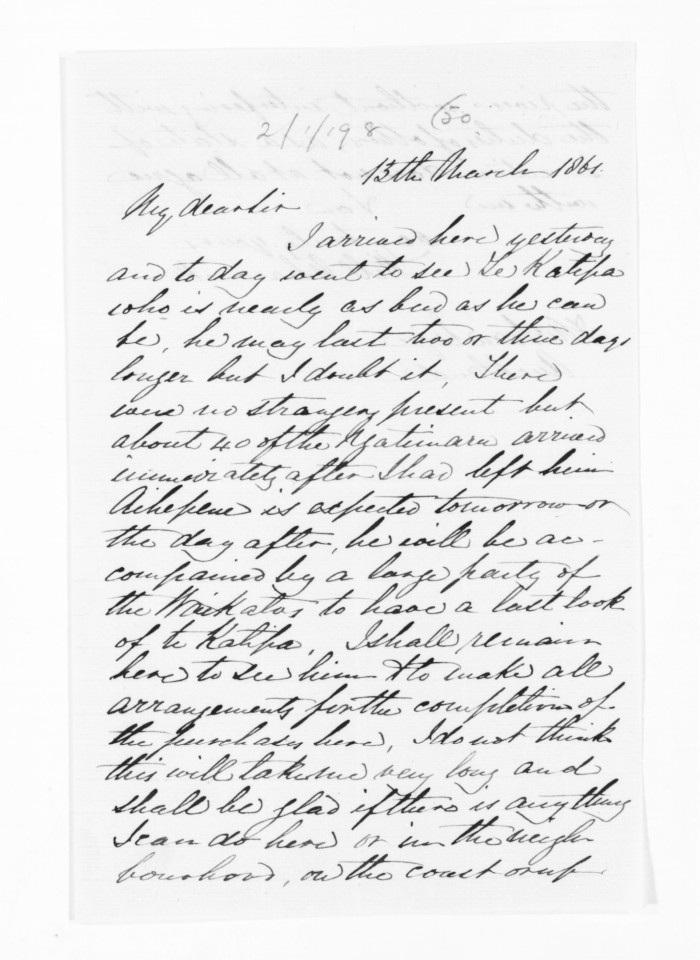 2/1/98 (50
13th March 1861.
My dear Sir
I arrived here yesterday
and to day went to see Te Katipa
who is nearly as bad as he can
be, he may last two or three days
longer but I doubt it, There
were no strangers present but
about 40 of the Ngatimaru arrived
immediately after I had left him
Aihepene is expected tomorrow or
the day after, he will be ac-
compained by a large party of
the Waikatos to have a last look
of te Katipa, I shall remain
here to see him & to make all
arrangements for the completion of
the purchases here, I do not think
this will take me very long and
shall be glad if there is anything
I can do here or in the neigh
bourhood, on the coast or up